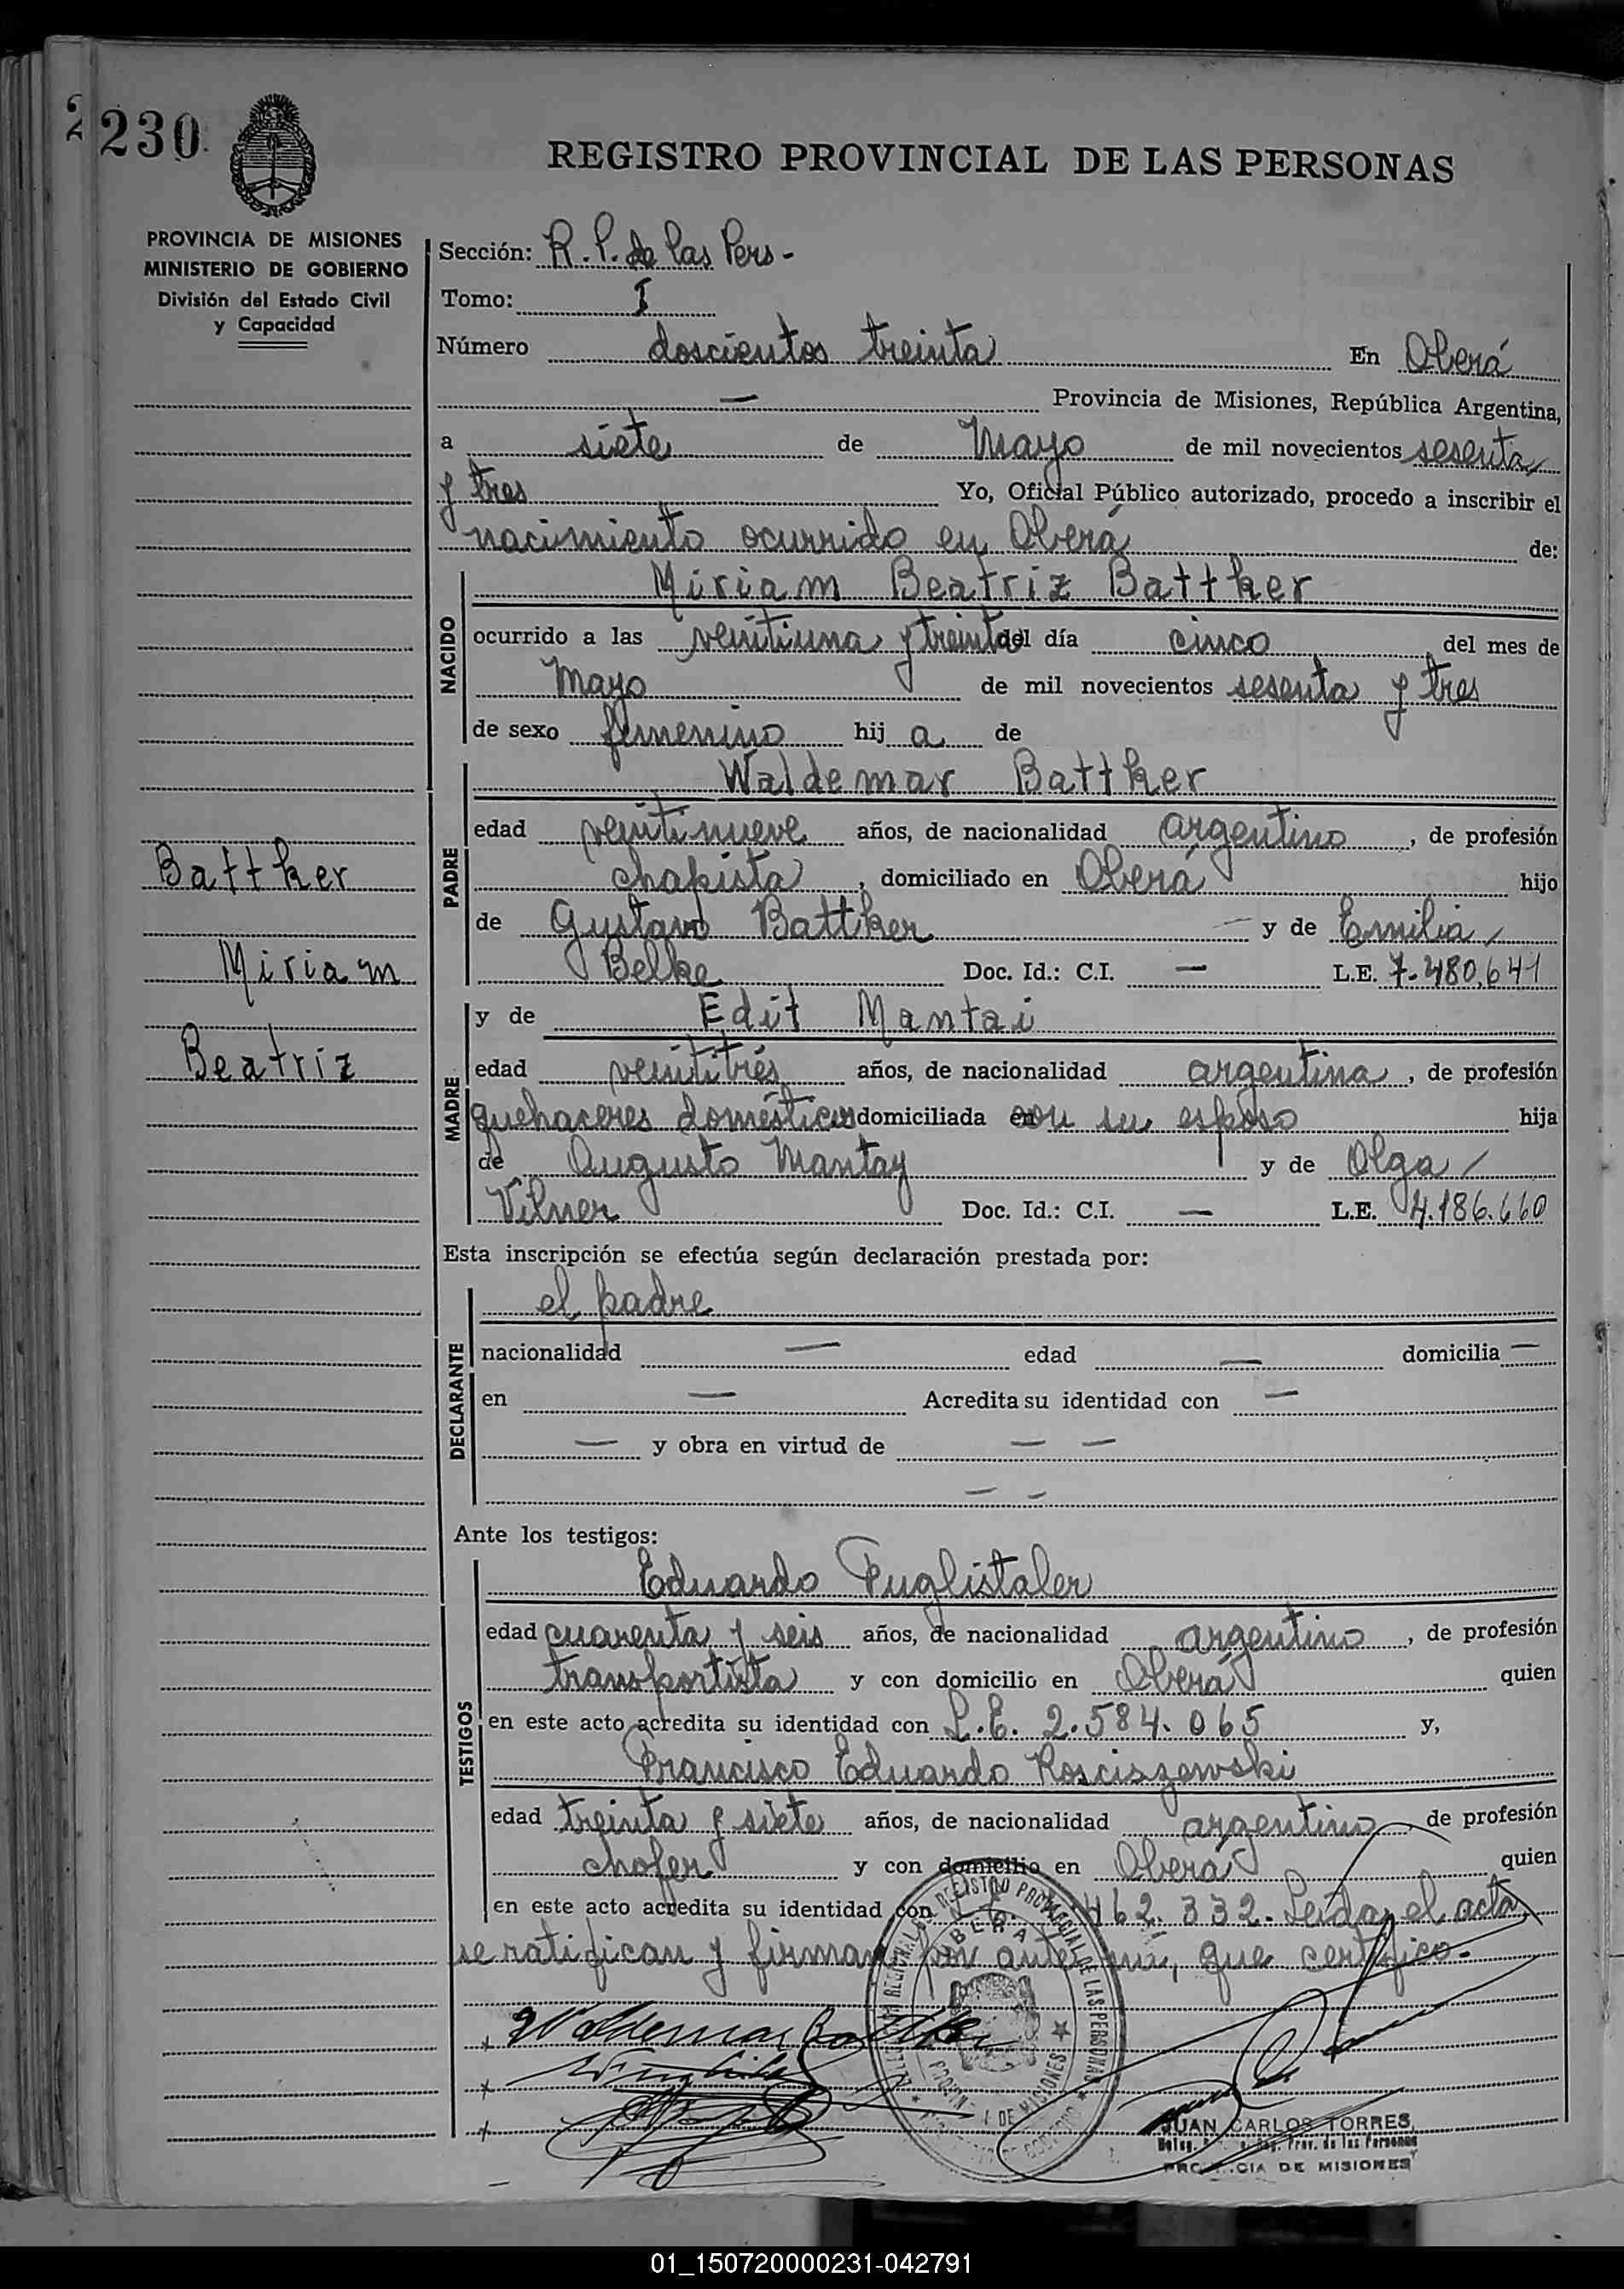 230
REGISTRO PROVINCIAL DE LAS PERSONAS
PROVINCIA DE MISIONES
MINISTERIO DE GOBIERNO
División del Estado Civil
y Capacidad
Sección: R. P. de las Pers -
Tomo: I
Número doscientos treinta En Oberá
— Provincia de Misiones, República Argentina,
a siete de Mayo de mil novecientos sesenta
y tres Yo, Oficial Público autorizado, procedo a inscribir el
nacimiento ocurrido en Oberá de:
NACIDO
Miriam Beatriz Battker
ocurrido a las veintiuna y treinta del día cinco del mes de
Mayo de mil novecientos sesenta y tres
de sexo femenino hij a de
PADRE
Waldemar Battker
edad veintinueve años, de nacionalidad argentino, de profesión
Battker
chapista, domiciliado en Oberá hijo
de Gustavo Battker — y de Emilia /
Miriam
Belke Doc. Id.: C.I. — L.E. 7.480.641
MADRE
y de Edit Mantai
Beatriz
edad veintitrés años, de nacionalidad argentina, de profesión
quehaceres domésticos domiciliada en con su esposo hija
de Augusto Mantay y de Olga /
Vilner Doc. Id.: C.I. — L.E. 4.186.660
Esta inscripción se efectúa según declaración prestada por:
DECLARANTE
el padre
nacionalidad — edad — domicilia —
en — Acredita su identidad con —
— y obra en virtud de — —
— —
Ante los testigos:
TESTIGOS
Eduardo Puglistaler
edad cuarenta y seis años, de nacionalidad argentino, de profesión
transportista y con domicilio en Oberá quien
en este acto acredita su identidad con L.E. 2.584.065 y,
Francisco Eduardo Rosciszewski
edad treinta y siete años, de nacionalidad argentino, de profesión
chofer y con domicilio en Oberá quien
en este acto acredita su identidad con 462.332. Leída el acta,
se ratifican y firman por ante mí, que certifico.
Waldemar Battker
OBERA
PROVINCIA DE MISIONES
JUAN CARLOS TORRES
Prov. de las Personas
PROVINCIA DE MISIONES
01_150720000231-042791